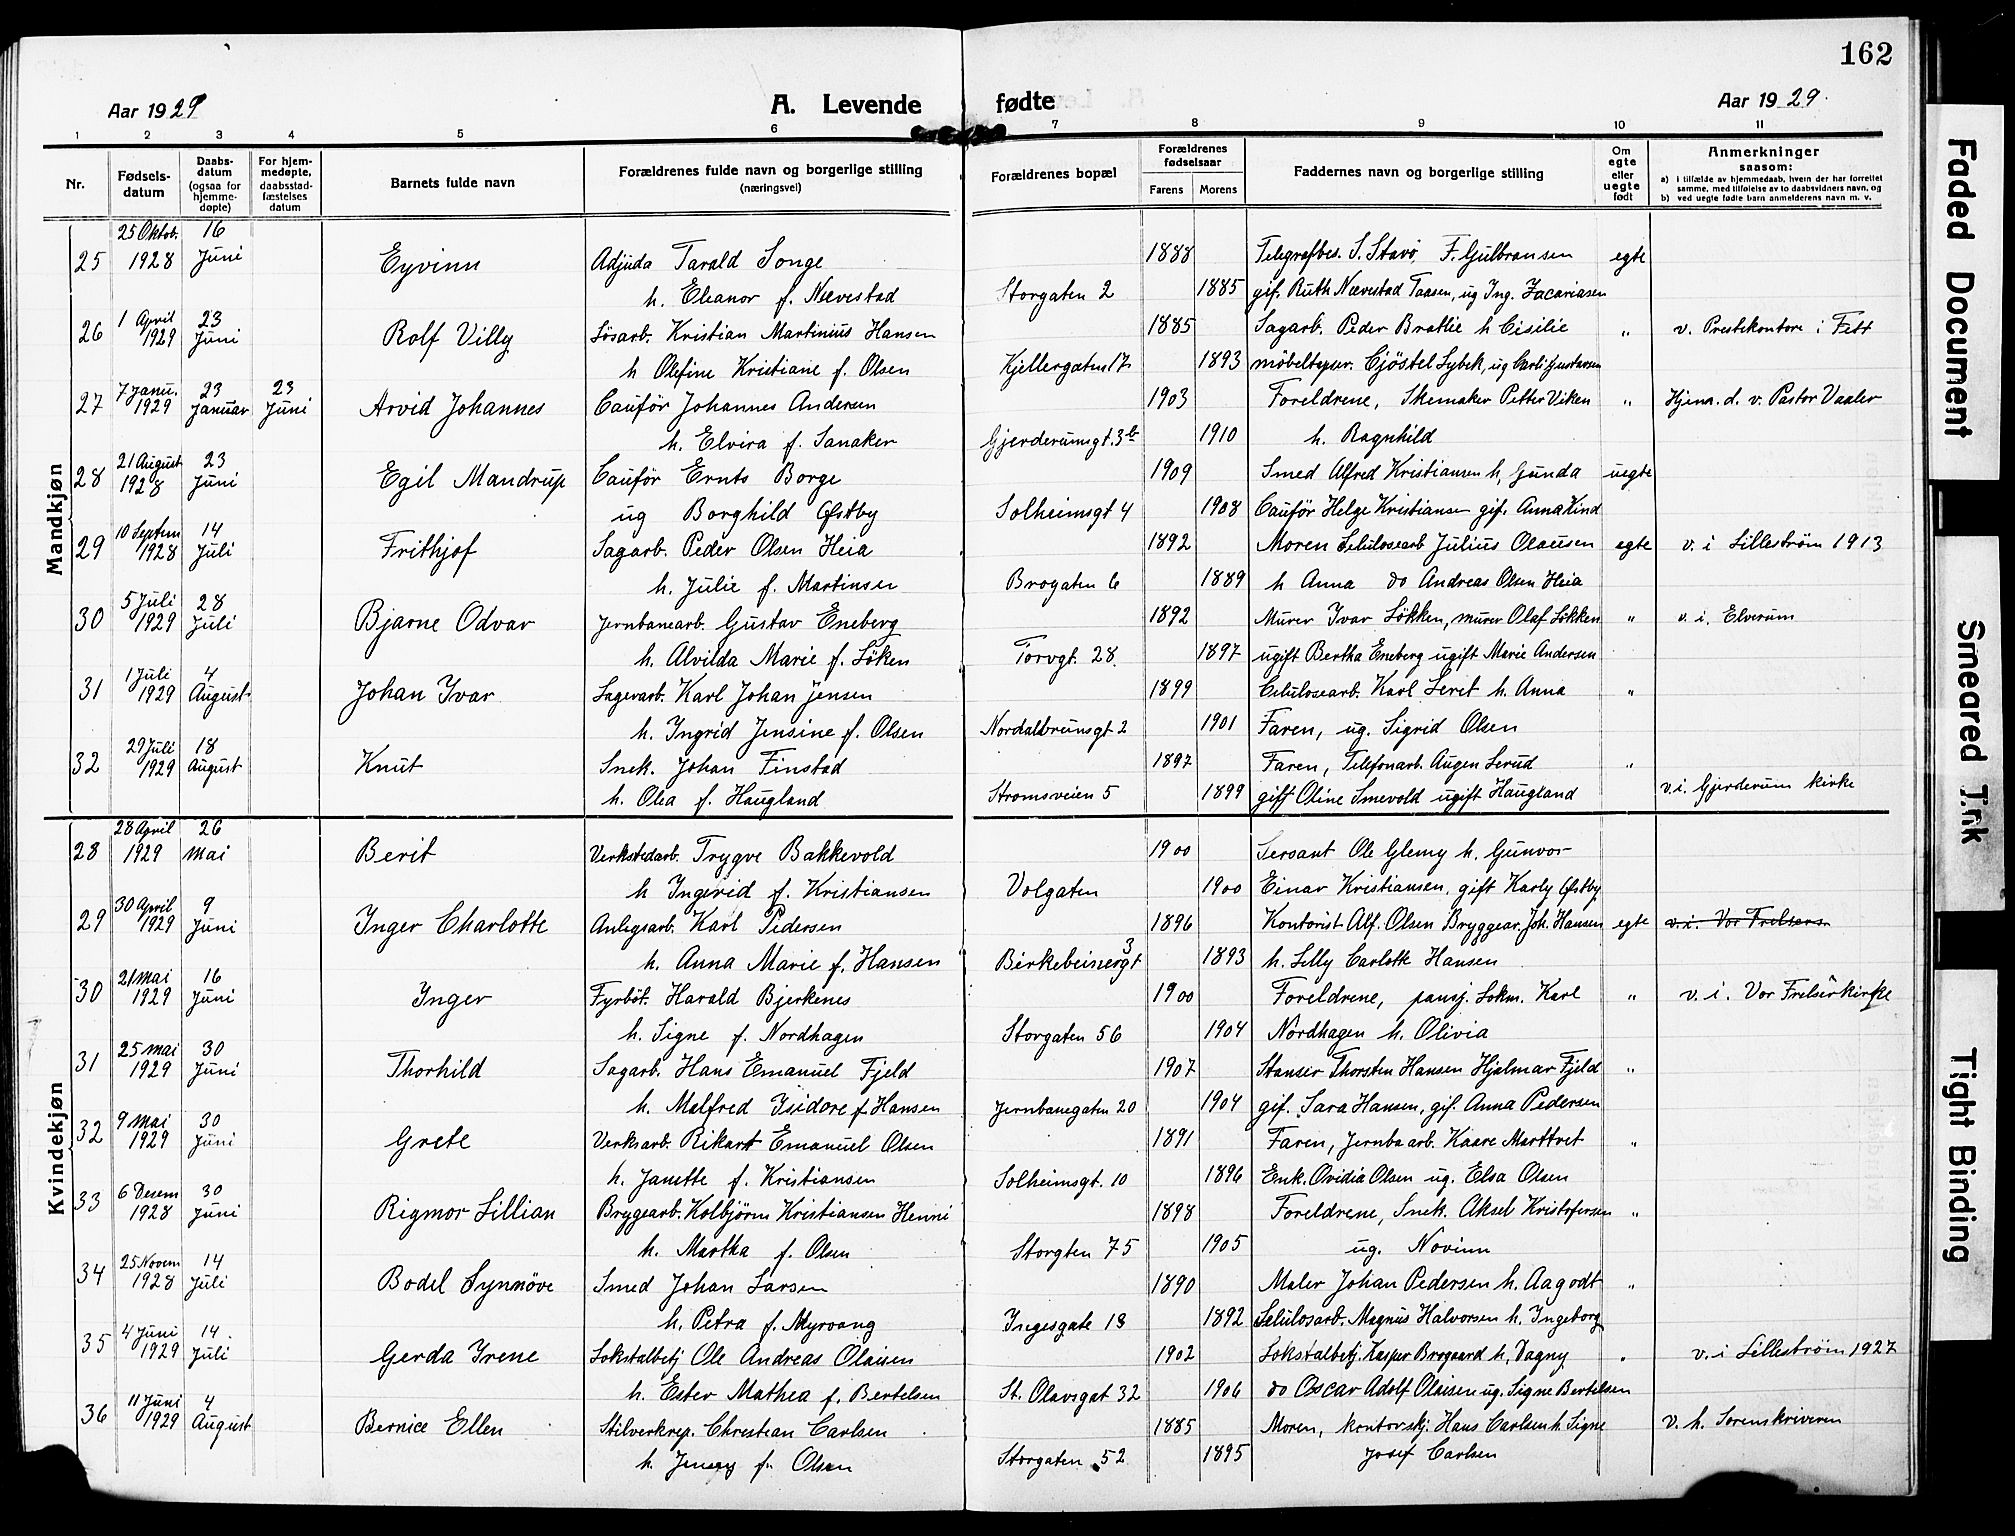 162
Aar 1929
A. Levende fødte
Aar 1929.
1 2 3 4 5 6 7 8 9 10 11
Nr.
Fødselsdatum
Daabsdatum (ogsaa for hjemmedøpte)
For hjemmedøpte, daabsstadfæstelses datum
Barnets fulde navn
Forældrenes fulde navn og borgerlige stilling (næringsvei)
Forældrenes bopæl
Forældrenes fødselsaar
Farens Morens
Faddernes navn og borgerlige stilling
Om egte eller uegte født
Anmerkninger saasom:
a) i tilfælde av hjemmedaab, hvem der har forrettet samme, med tilføielse av to daabsvidners navn, og
b) ved uegte fødte barn anmelderens navn m. v.
Mandkjøn
25 25 Oktob. 1928 16 Juni Eyvinn Adjuda Tarald Songe 1888 Telegrafbes. S. Stavø F. Gulbransen egte
h. Eleanor f. Nævestad Storgaten 2 1885 gif. Ruth Nævestad Taasen, ug Ing. Zacariasen
26 1 April 1929 23 Juni Rolf Villy Løsarb. Kristian Martinius Hansen 1885 Sagarb. Peder Bratlie h Cisilie " v. Prestekontore i Fett
h Olefine Kristiane f. Olsen Kjellergaten 17 1893 möbeltapser. Cjöstel Lybek, ug Carli Gustavsen
27 7 Janu. 1929 23 Januar 23 Juni Arvid Johannes Cauför Johannes Andersen 1903 Foreldrene, Skemaker Petter Viken " Hjem. d. v. Pastor Vaaler
h. Elvira f. Sanaker Gjerderumsgt. 3b 1910 h. Ragnhild
28 21 August 1928 23 Juni Egil Mandrup Cauför Ernts Borge 1909 Smed Alfred Kristiansen h, Gunda uegte
ug Borghild Østby Solheimsgt 4 1908 Cauför Helge Kristianse gif. Anna Kind
29 10 Septem 1928 14 Juli Frithjof Sagarb. Peder Olsen Heia 1892 Moren Celulosearb Julius Olausen egte v. i Lilleström 1913
h. Julie f. Martinsen Brogaten 6 1889 h Anna do Andreas Olsen Heia
30 5 Juli 1929 28 Juli Bjarne Odvar Jernbanearb. Gustav Eneberg 1892 Murer Ivar Løkken, murer Olaf Løkken " v. i. Elverum
h. Alvilda Marie f. Löken Torvgt. 28. 1897 ugift Bertha Eneberg ugift Marie Andersen
31 1 Juli 1929 4 August Johan Ivar Lagerarb. Karl Johan Jensen 1899 Celulosearb. Karl Leret h. Anna "
h. Ingrid Jensine f. Olsen Nordalbrunsgt 2 1901 Faren, ug. Sigrid Olsen
32 29 Juli 1929 18 August Knut Snek. Johan Finstad 1897 Faren, Telefonarb. Augen Lerud "
h. Olea f. Haugland Stromsveien 5 1899 gift Oline Smevold ugift Haugland v. i. Gjerderum kirke
Kvindekjøn
28 28 April 1929 26 Mai Berit Verkstedarb. Trygve Bakkevold 1900 Sersant Ole Glemy h. Gunvor
h Ingerid f. Kristiansen Volgaten 1900 Einar Kristiansen, gift Karly Østby
29 30 April 1929 9 Juni Inger Charlotte Anlegsarb. Karl Pedersen 1896 Kontorist Alf. Olsen Bryggear. Joh. Hansen egte v. i. Vor Frelsers
h. Anna Marie f. Hansen Birkebeinergt 3 1893 h. Lilly Carlotte Hansen
30 21 Mai 1929 16 Juni Inger Fyrböt. Harald Bjerkenes 1900 Foreldrene, pansj. Lokm. Karl " v. i. Vor Frelserkirke
h. Signe f. Nordhagen Storgaten 56 1904 Nordhagen h. Olivia
31 25 mai 1929 30 Juni Thorhild Sagarb. Hans Emanuel Fjeld 1907 Stanser Thorsten Hansen Hjalmar Fjeld "
h. Malfred Isidore f. Hansen Jernbanegaten 20 1904 gif. Sara Hansen, gif. Anna Pedersen
32 9 Mai 1929 30 Juni Grete Verksarb. Rikart Emanuel Olsen 1891 Faren, Jernbaarb. Kaare Marttvet "
h. Janette f. Kristiansen Solheimsgt. 10 1896 Enk. Ovidia Olsen ug. Elsa Olsen
33 6 Desem 1928 30 Juni Rigmor Lillian Brygearb. Kolbjörn Kristiansen Henni 1898 Foreldrene, Snek. Aksel Kristofersen "
h. Martha f. Olsen Storgten 75 1905 ug. Novinn
34 25 Novem 1928 14 Juli Bodel Synnöve Smed Johan Larsen 1890 Maler Johan Pedersen h. Aagodt "
h. Petra f. Myrvang Ingesgate 18 1892 Selulosarb. Magnus Halvorsen h. Ingeborg
35 4 Juni 1929 14. Juli Gerda Irene Lokstalbetj Ole Andreas Olaisen 1902 Lokstalbetj. Kasper Brogaard h, Dagny " v. i Lilleström 1927
h. Ester Mathea f. Bertelsen St. Olavsgat 32 1906 do Oscar Adolf Olaisen ug. Signe Bertelsen
36 11 Juni 1929 4 August Bernice Ellen Stilverkrep. Christian Carlsen 1885 Moren, kontorskj. Hans Carlsen h. Signe v. h. Sorenskriveren
h. Jenny f. Olsen Storgaten 52 1895 Josef Carlsen
Faded Document
Smeared Ink
Tight Binding